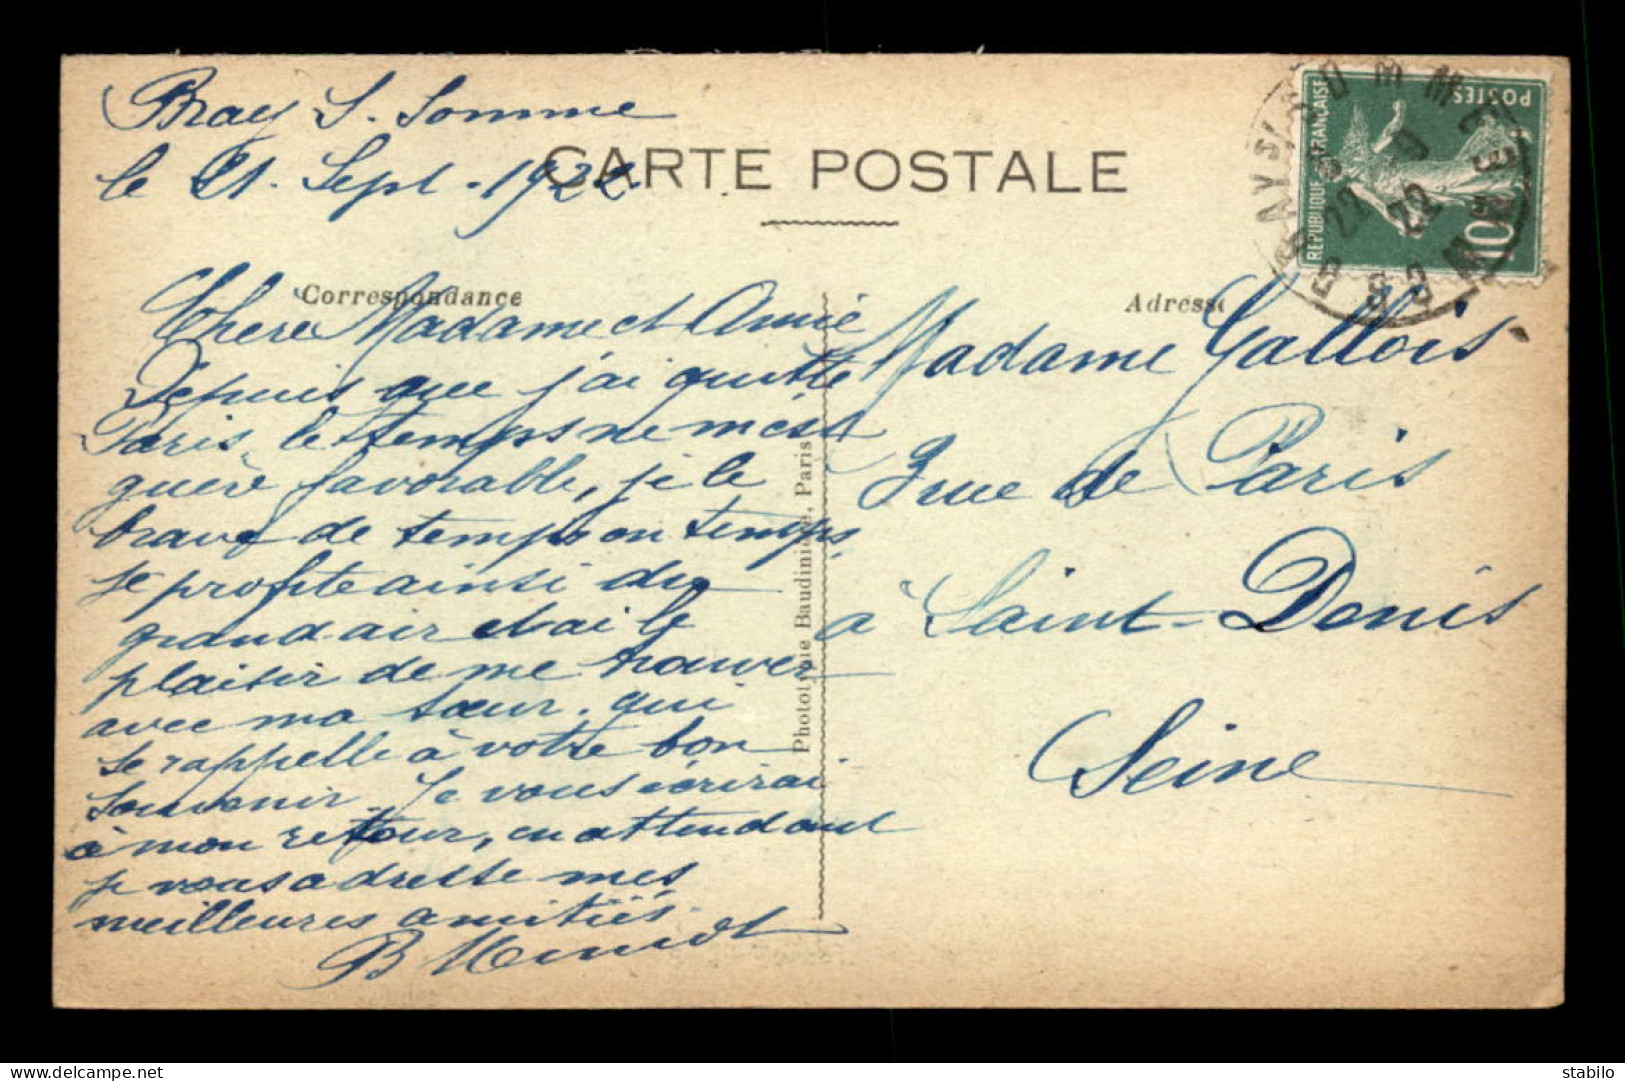 Bray S. Somme
le 21. Sept. 1922.
CARTE POSTALE
Correspondance
Chere Madame et Amie
Depuis que j'ai quitté
Paris, le temps ne m'est
guère favorable, je le
brave de temps en temps
je profite ainsi du
grand air et ai le
plaisir de me trouver
avec ma sœur. qui
se rappelle à votre bon
souvenir. Je vous écrirai
à mon retour, en attendant
je vous adresse mes
meilleures amitiés.
B
Phototypie Baudinière, Paris
Adresse
Madame Gallois
rue de Paris
à Saint-Denis
Seine
REPUBLIQUE FRANÇAISE
POSTES
10
BRAY S/ SOMME
22
22
Delcampe.net
stabilo